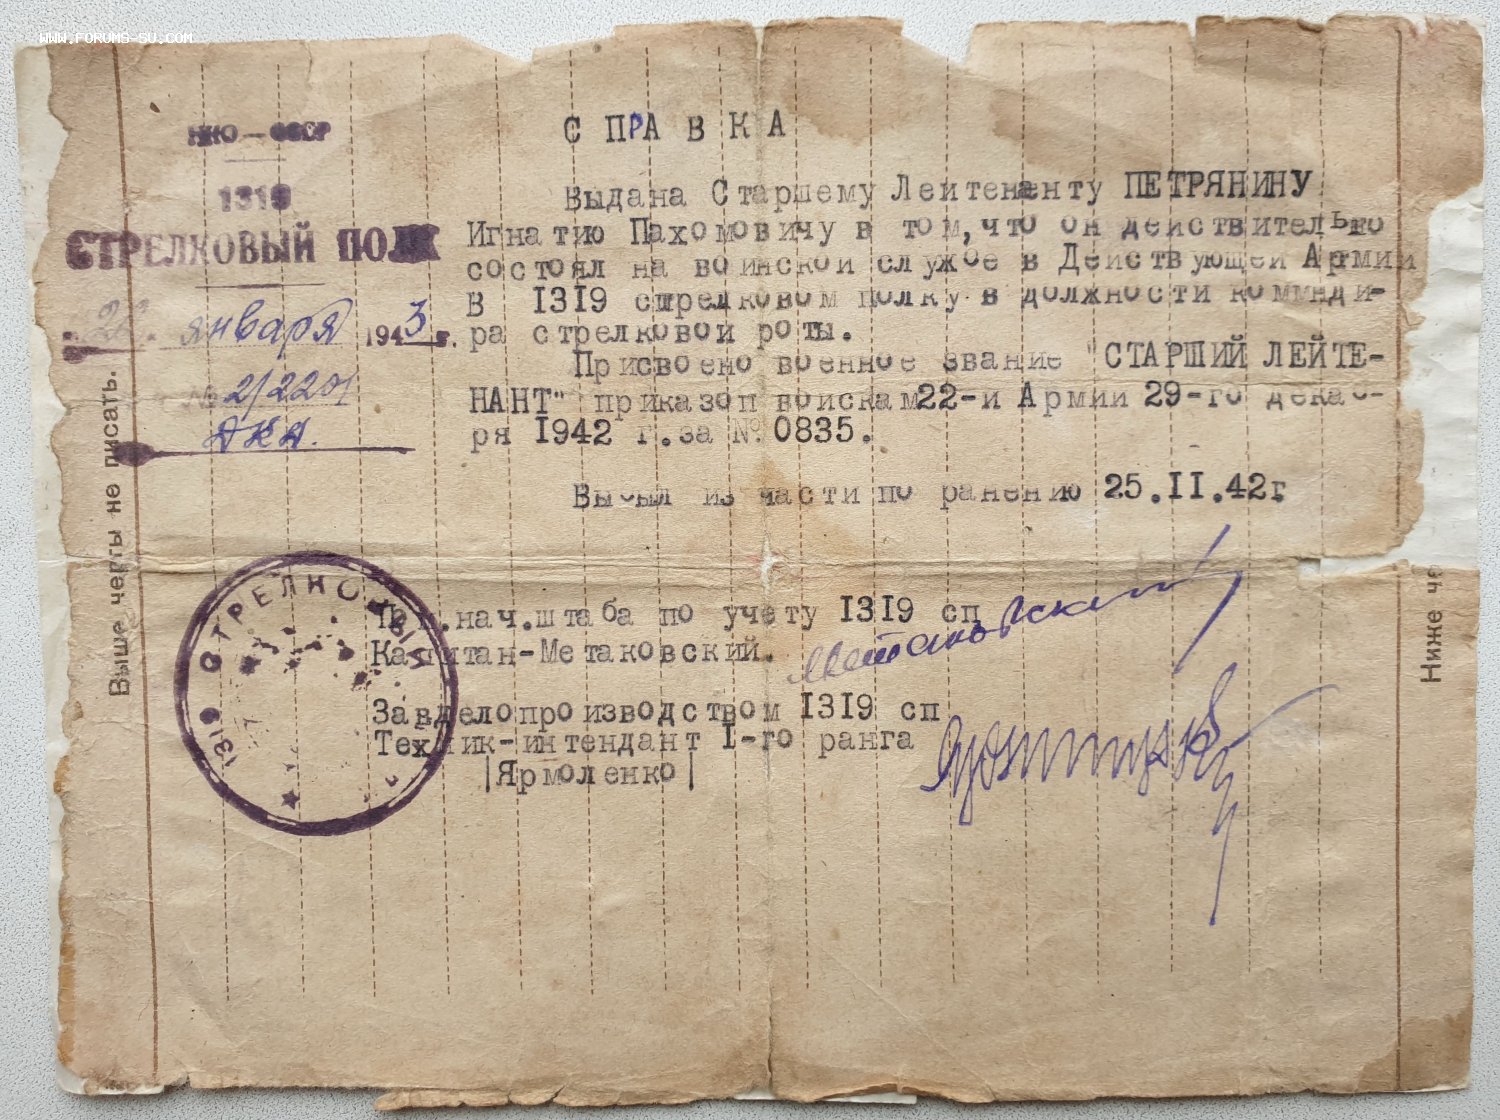 WWW.FORUMS-SU.COM
НКО — СССР
1319
СТРЕЛКОВЫЙ ПОЛК
января 1943 г.
№ 2/2201
СПРАВКА
Выдана Старшему Лейтенанту ПЕТРЯНИНУ
Игнатию Пахомовичу в том, что он действительно
состоял на воинской службе в Действующей Армии
в 1319 стрелковом полку в должности комманди-
ра стрелковой роты.
Присвоено военное звание "СТАРШИЙ ЛЕЙТЕ-
НАНТ" приказоп воискам 22-й Армии 29-го декаб-
ря 1942 г. за № 0835.
Выбыл из части по ранению 25.II.42г.
нач. штаба по учету 1319 сп
Капитан-Метаковский.
Метаковский
Завделопроизводством 1319 сп
Техник-интендант I-го ранга
|Ярмоленко|
1319 СТРЕЛКОВЫЙ
Выше черты не писать.
Ниже че